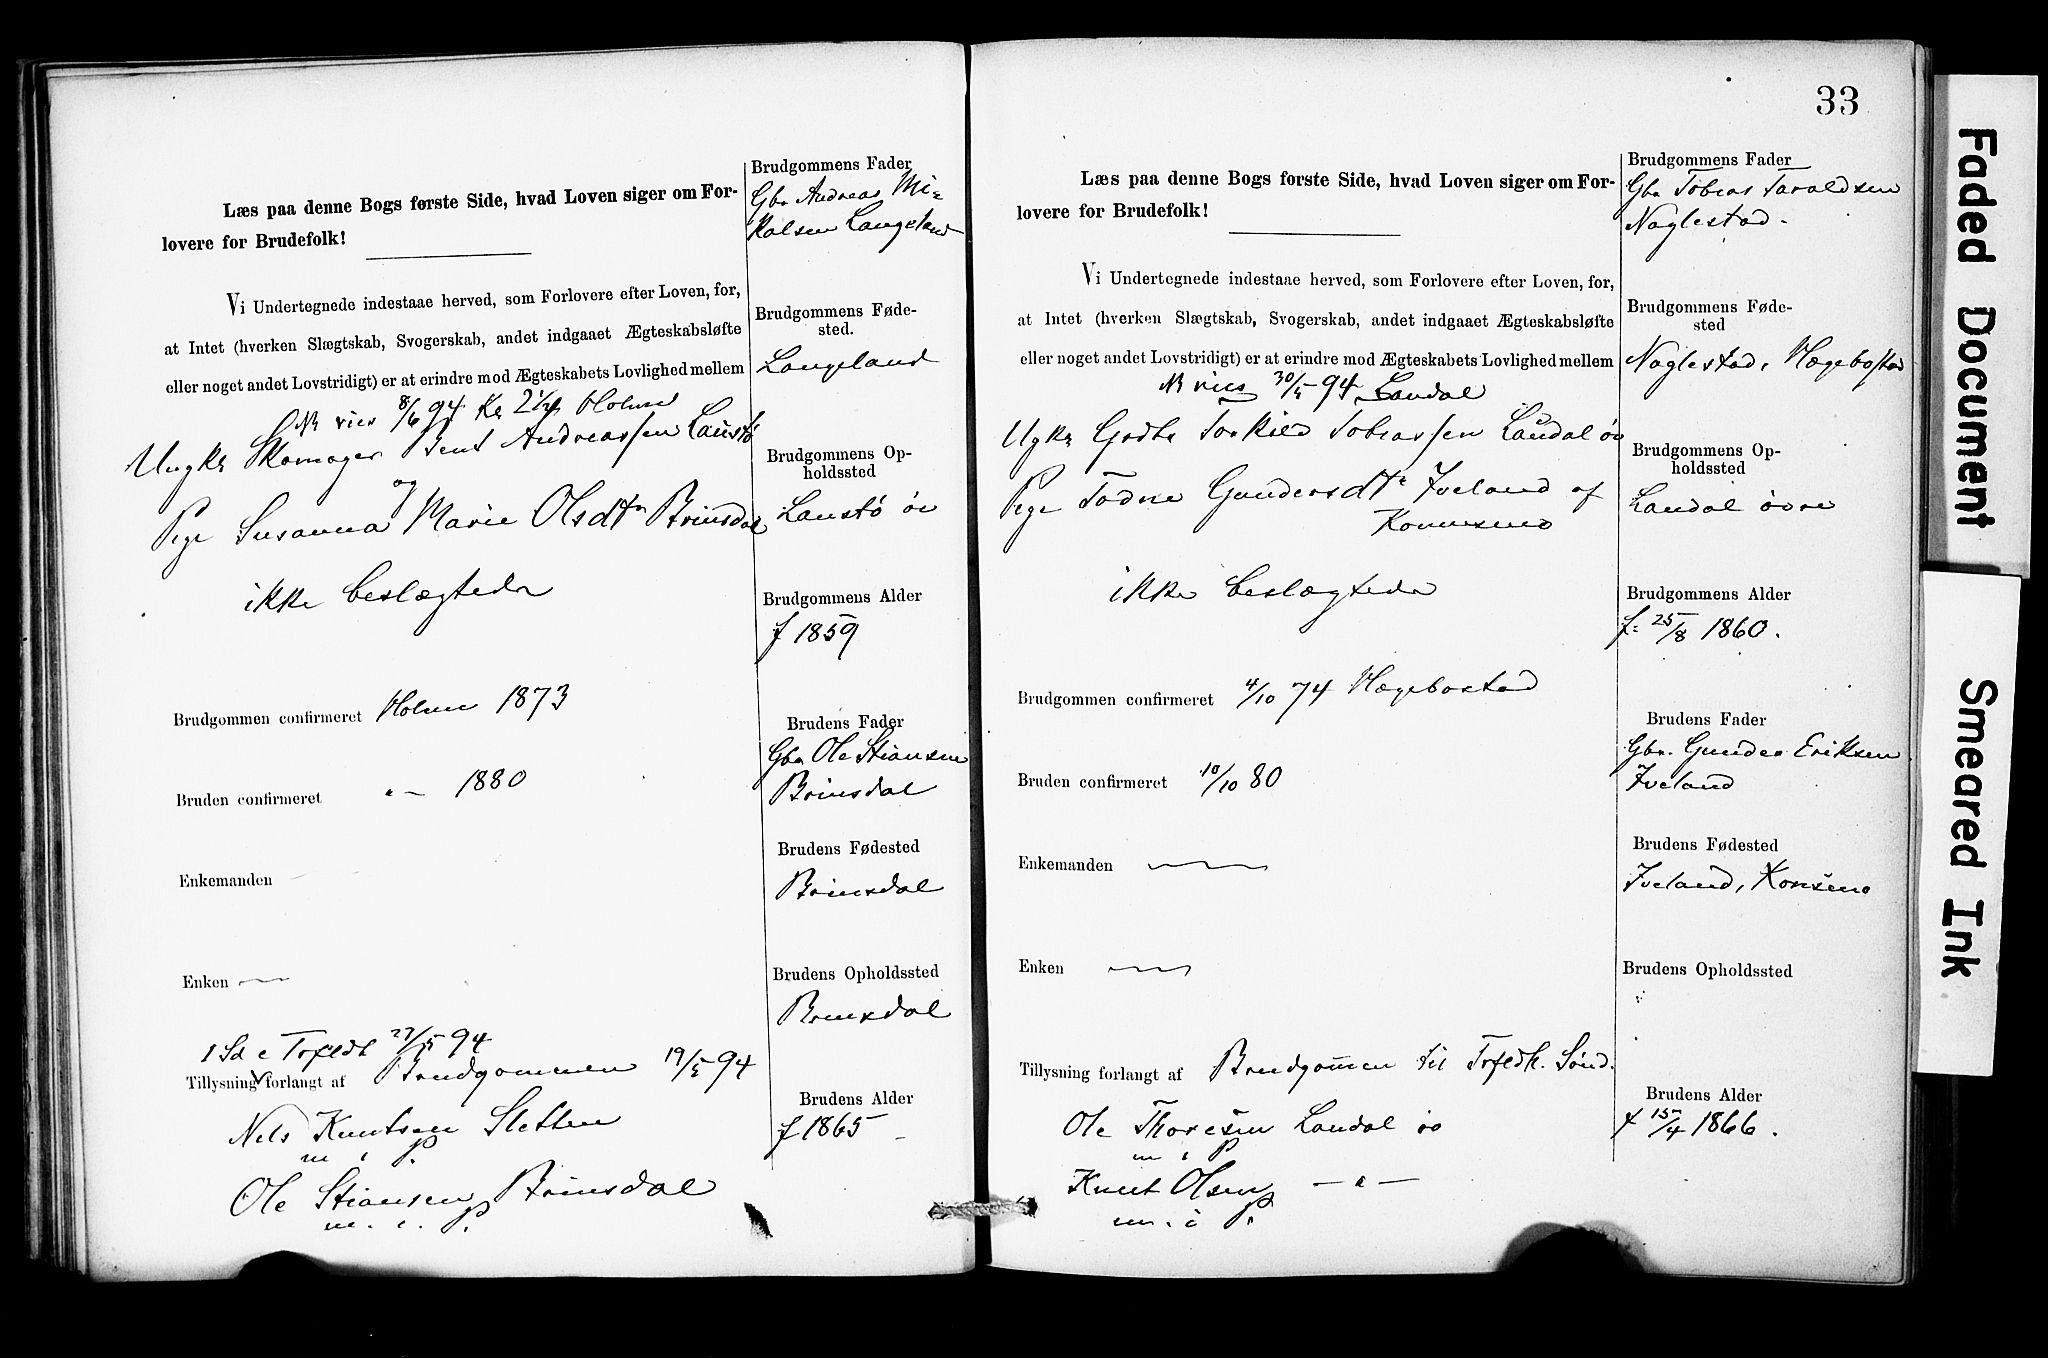 Læs paa denne Bogs første Side, hvad Loven siger om For-
lovere for Brudefolk!
Vi Undertegnede indestaae herved, som Forlovere efter Loven, for,
at Intet (hverken Slægtskab, Svogerskab, andet indgaaet Ægteskabsløfte
eller noget andet Lovstridigt) er at erindre mod Ægteskabets Lovlighed mellem
NB vies 8/6 94 Kl 2 1/2 Holme
Ungkr Skomager Bent Andreassen Laustø
og
Pige Susanna Marie Olsdtr Brinsdal
ikke beslægtede
Brudgommen confirmeret Holme 1873
Bruden confirmeret -"- 1880
Enkemanden
Enken
1 Sd e Trefldt 27/5 94
Tillysning forlangt af Brudgommen 19/5 94
Nels Knutsen Sletten
m. i. P.
Ole Stiansen Brinsdal
m. i. P.
Brudgommens Fader
Gbr Andreas Mi-
kalsen Langeland
Brudgommens Føde-
sted.
Langeland
Brudgommens Op-
holdssted
Laustø ø
Brudgommens Alder
f 1859
Brudens Fader
Gbr Ole Stiansen
Brinsdal
Brudens Fødested
Brinsdal
Brudens Opholdssted
Brinsdal
Brudens Alder
f 1865
33
Læs paa denne Bogs første Side, hvad Loven siger om For-
lovere for Brudefolk!
Vi Undertegnede indestaae herved, som Forlovere efter Loven, for,
at Intet (hverken Slægtskab, Svogerskab, andet indgaaet Ægteskabsløfte
eller noget andet Lovstridigt) er at erindre mod Ægteskabets Lovlighed mellem
NB vies 30/5 94 Laudal
Ugkr Gdbr Torkild Tobiassen Laudal øv
Pige Todne Gundersdtr Iveland af
Konsmo
ikke beslægtede
Brudgommen confirmeret 4/10 74 Hægebostad
Bruden confirmeret 10/10 80
Enkemanden
Enken
Tillysning forlangt af Brudgommen til Trefldh. Sønd.
Ole Thoresen Laudal øv
m i P
Knut Olsen -"-
m. i P.
Brudgommens Fader
Gbr Tobias Taraldsen
Naglestad.
Brudgommens Føde-
sted
Naglestad, Hægebostad
Brudgommens Op-
holdssted
Laudal øvre
Brudgommens Alder
f: 25/8 1860.
Brudens Fader
Gbr. Gunder Eriksen
Iveland
Brudens Fødested
Iveland, Konsmo
Brudens Opholdssted
Brudens Alder
f 15/4 1866.
Faded Document
Smeared Ink